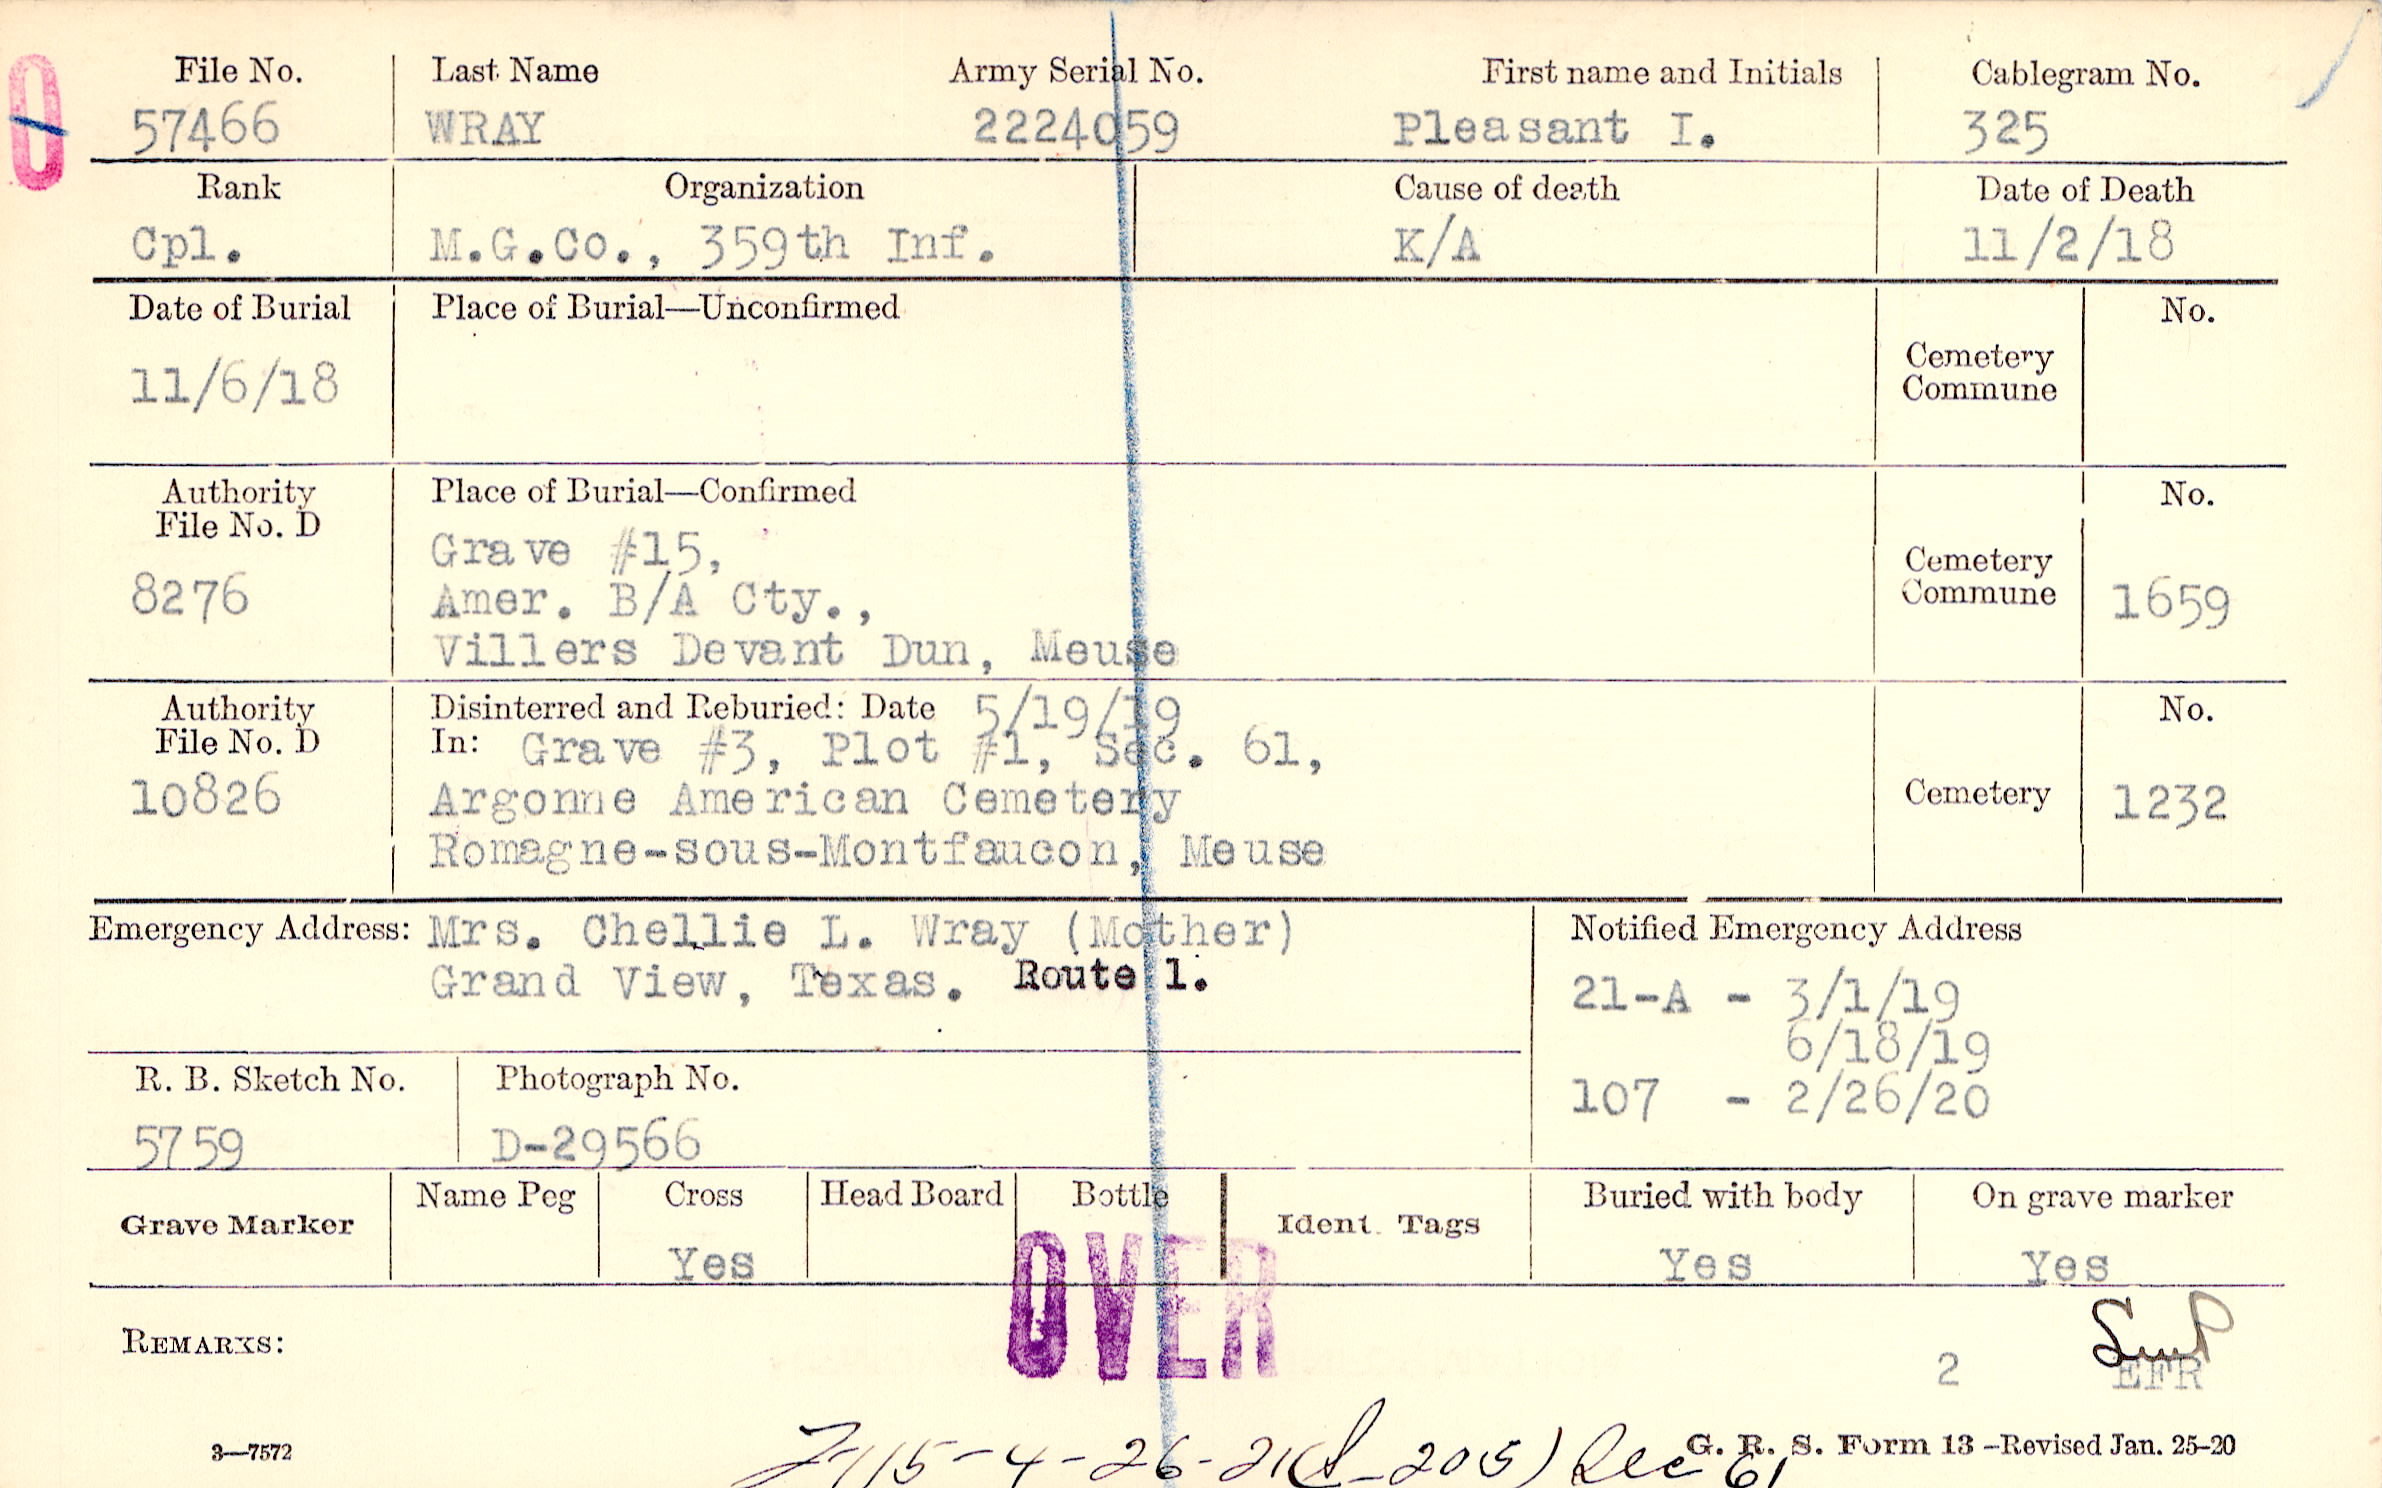 File No. Last Name Army Serial No. First name and Initials Cablegram No.
57466 WRAY 2224059 Pleasant I. 325
Rank Organization Cause of death Date of Death
Cpl. M.G.Co., 359th Inf. K/A 11/2/18
Date of Burial Place of Burial—Unconfirmed No.
11/6/18
Cemetery
Commune
Authority Place of Burial—Confirmed No.
File No. D
8276
Grave #15,
Amer. B/A Cty.,
Villers Devant Dun, Meuse
Cemetery
Commune 1659
Authority Disinterred and Reburied: Date 5/19/19 No.
File No. D In: Grave #3, Plot #1, Sec. 61,
10826 Argonne American Cemetery Cemetery 1232
Romagne-sous-Montfaucon, Meuse
Emergency Address: Mrs. Chellie L. Wray (Mother)
Grand View, Texas. Route 1.
Notified Emergency Address
21-A - 3/1/19
6/18/19
107 - 2/26/20
R. B. Sketch No. Photograph No.
5759 D-29566
Grave Marker Name Peg Cross Head Board Bottle Ident. Tags Buried with body On grave marker
Yes Yes Yes
OVER
REMARKS:
2 EFR
3—7572
G. R. S. Form 13—Revised Jan. 25-20
115-4-26-21( -205) Sec 61